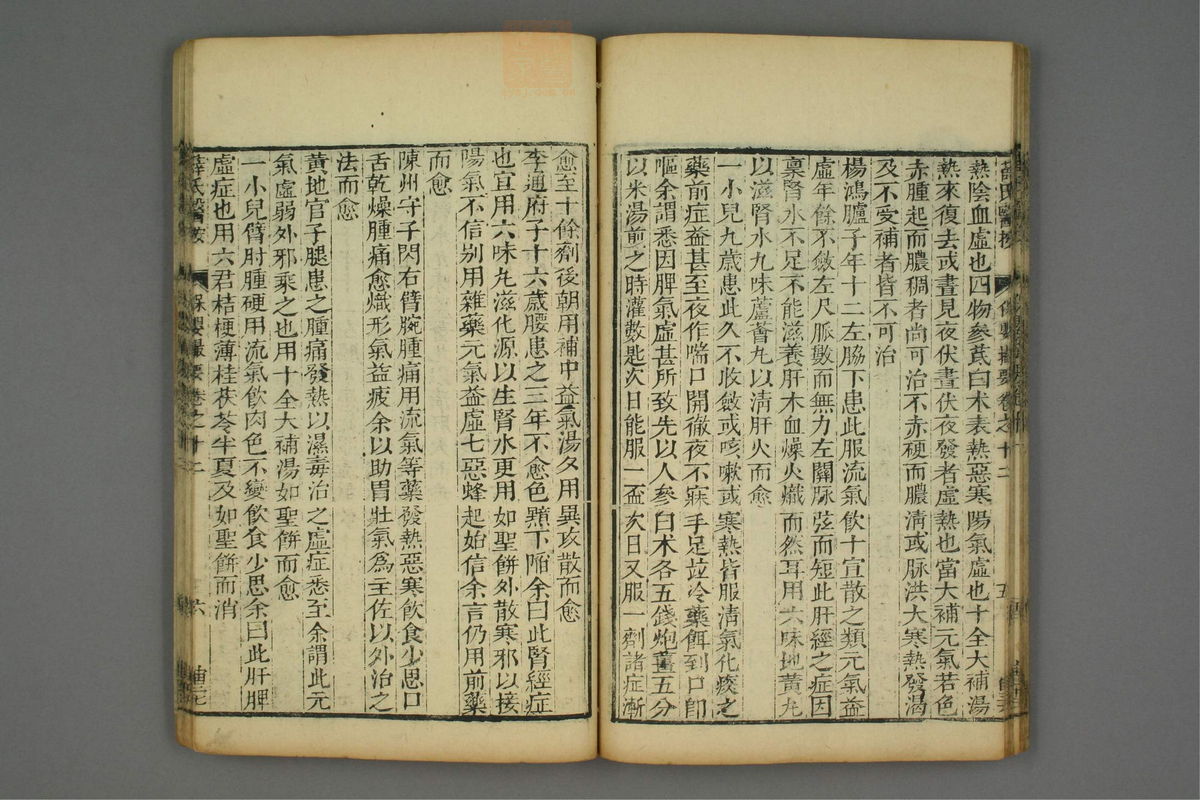 薛氏醫按
保嬰撮要卷之十二
五
熱陰血虛也四物參芪白术表熱惡寒陽氣虛也十全大補湯
熱來復去或晝見夜伏晝伏夜發者虛熱也當大補元氣若色
赤腫起而膿稠者尚可治不赤硬而膿淸或脉洪大寒熱發渴
及不受補者皆不可治
楊鴻臚子年十二左脇下患此服流氣飮十宣散之類元氣益
虛年餘不斂左尺脈數而無力左關脉弦而短此肝經之症因
稟腎水不足不能滋養肝木血燥火熾而然耳用六味地黃丸
以滋腎水九味蘆薈丸以淸肝火而愈
一小兒九歲患此久不收斂或咳嗽或寒熱皆服淸氣化痰之
藥前症益甚至夜作喘口開徹夜不寐手足竝冷藥餌到口卽
嘔余謂悉因脾氣虛甚所致先以人參白术各五錢炮薑五分
以米湯煎之時灌數匙次日能服一盃次日又服一劑諸症漸
愈至十餘劑後朝用補中益氣湯夕用異攻散而愈
李通府子十六歲腰患之三年不愈色黯下陷余曰此腎經症
也宜用六味丸滋化源以生腎水更用如聖餅外散寒邪以接
陽氣不信别用雜藥元氣益虛七惡蜂起始信余言仍用前藥
而愈
陳州守子閃右臂腕腫痛用流氣等藥發熱惡寒飮食少思口
舌乾燥腫痛愈熾形氣益疲余以助胃壯氣爲主佐以外治之
法而愈
黃地官子腿患之腫痛發熱以濕毒治之虛症悉至余謂此元
氣虛弱外邪乘之也用十全大補湯如聖餅而愈
一小兒臂肘腫硬用流氣飮肉色不變飮食少思余曰此肝脾
虛症也用六君桔梗薄桂茯苓半夏及如聖餅而消
薛氏醫按
保嬰撮要卷之十二
六